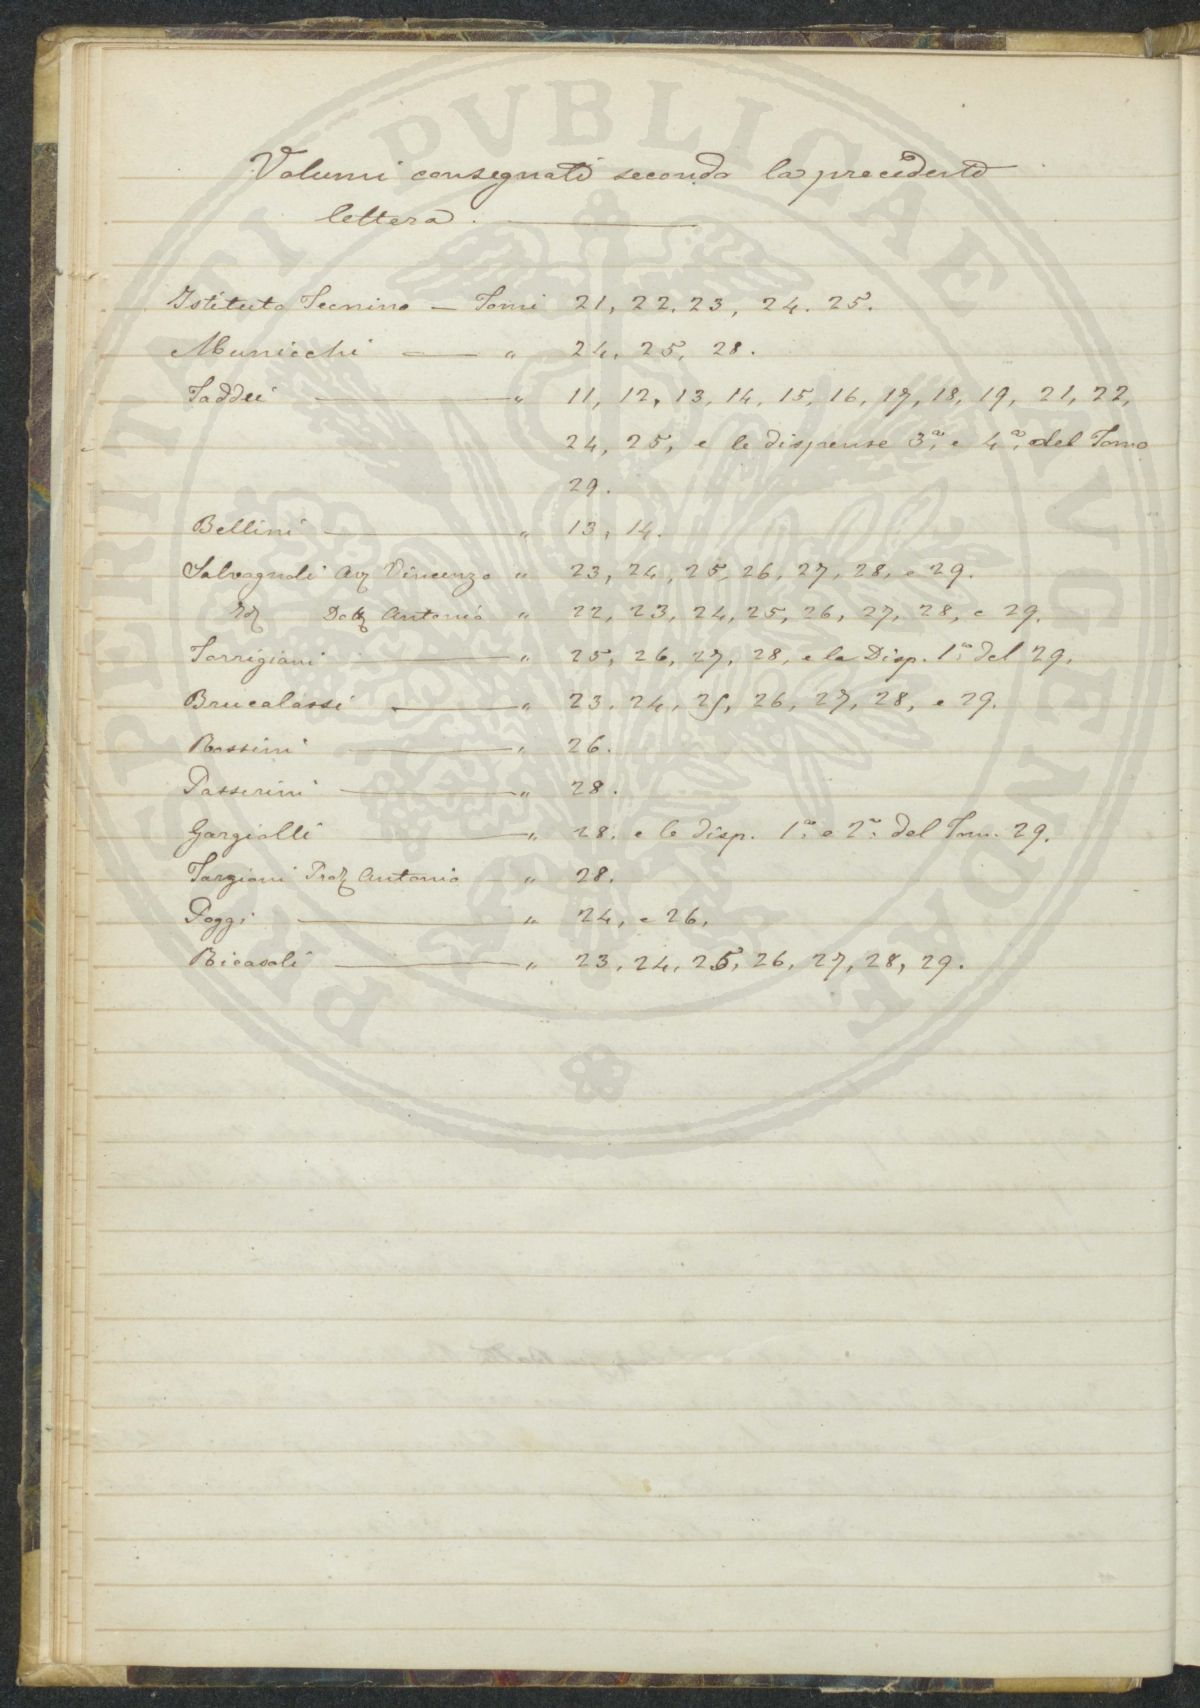 Volumi consegnati secondo la precedente
lettera.
Istituto Tecnino — Tomi 21, 22, 23, 24. 25.
Municchi — " 24, 25, 28.
Taddei — " 11, 12, 13, 14, 15, 16, 17, 18, 19, 21, 22,
24, 25, e le dispense 3ª, e 4ª, del Tomo
29.
Bellini — " 13, 14.
Salvagnoli Avv Vincenzo " 23, 24, 25, 26, 27, 28, e 29.
Id Dott Antonio " 22, 23, 24, 25, 26, 27, 28, e 29.
Torrigiani — " 25, 26, 27, 28, e la Disp. 1ª del 29.
Brucalassi — " 23. 24, 25, 26, 27, 28, e 29.
Rossini — " 26.
Passerini — " 28.
Gargiolli — " 28. e le disp. 1ª e 2ª del Tom. 29.
Targioni Prof Antonio — " 28.
Poggi — " 24, e 26,
Ricasoli — " 23, 24, 25, 26, 27, 28, 29.
PROSPERITATI PVBLICAE AVGENDAE